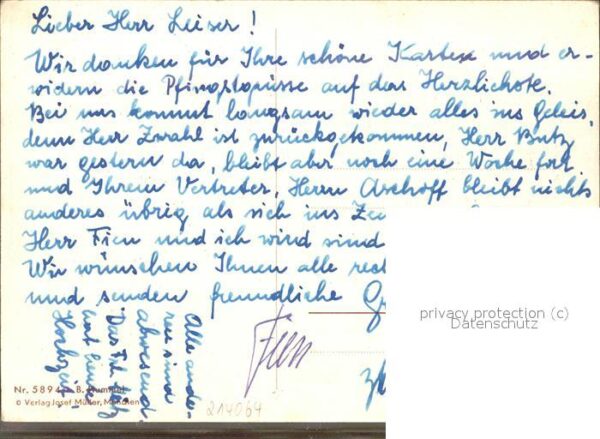 Lieber Herr Leiser!
Wir danken für Ihre schöne Karten und er-
widern die Pfingstgrüsse auf das Herzlichste.
Bei uns kommt langsam wieder alles ins Geleis,
denn Herr Zwahl ist zurückgekommen, Herr Butz
war gestern da, bleibt aber noch eine Woche fort
und Ihrem Vertreter, Herrn Aschoff bleibt nichts
anderes übrig als sich ins Zeu
Herr Fien und ich wird sind
Wir wünschen Ihnen alle rech
und senden freundliche Gr
Alle ande-
ren sind
abwesend.
Das Frl.
hat heute
Hochzeit.
Nr. 5894 B. Hummel
© Verlag Josef Müller, München
214064
privacy protection (c)
Datenschutz